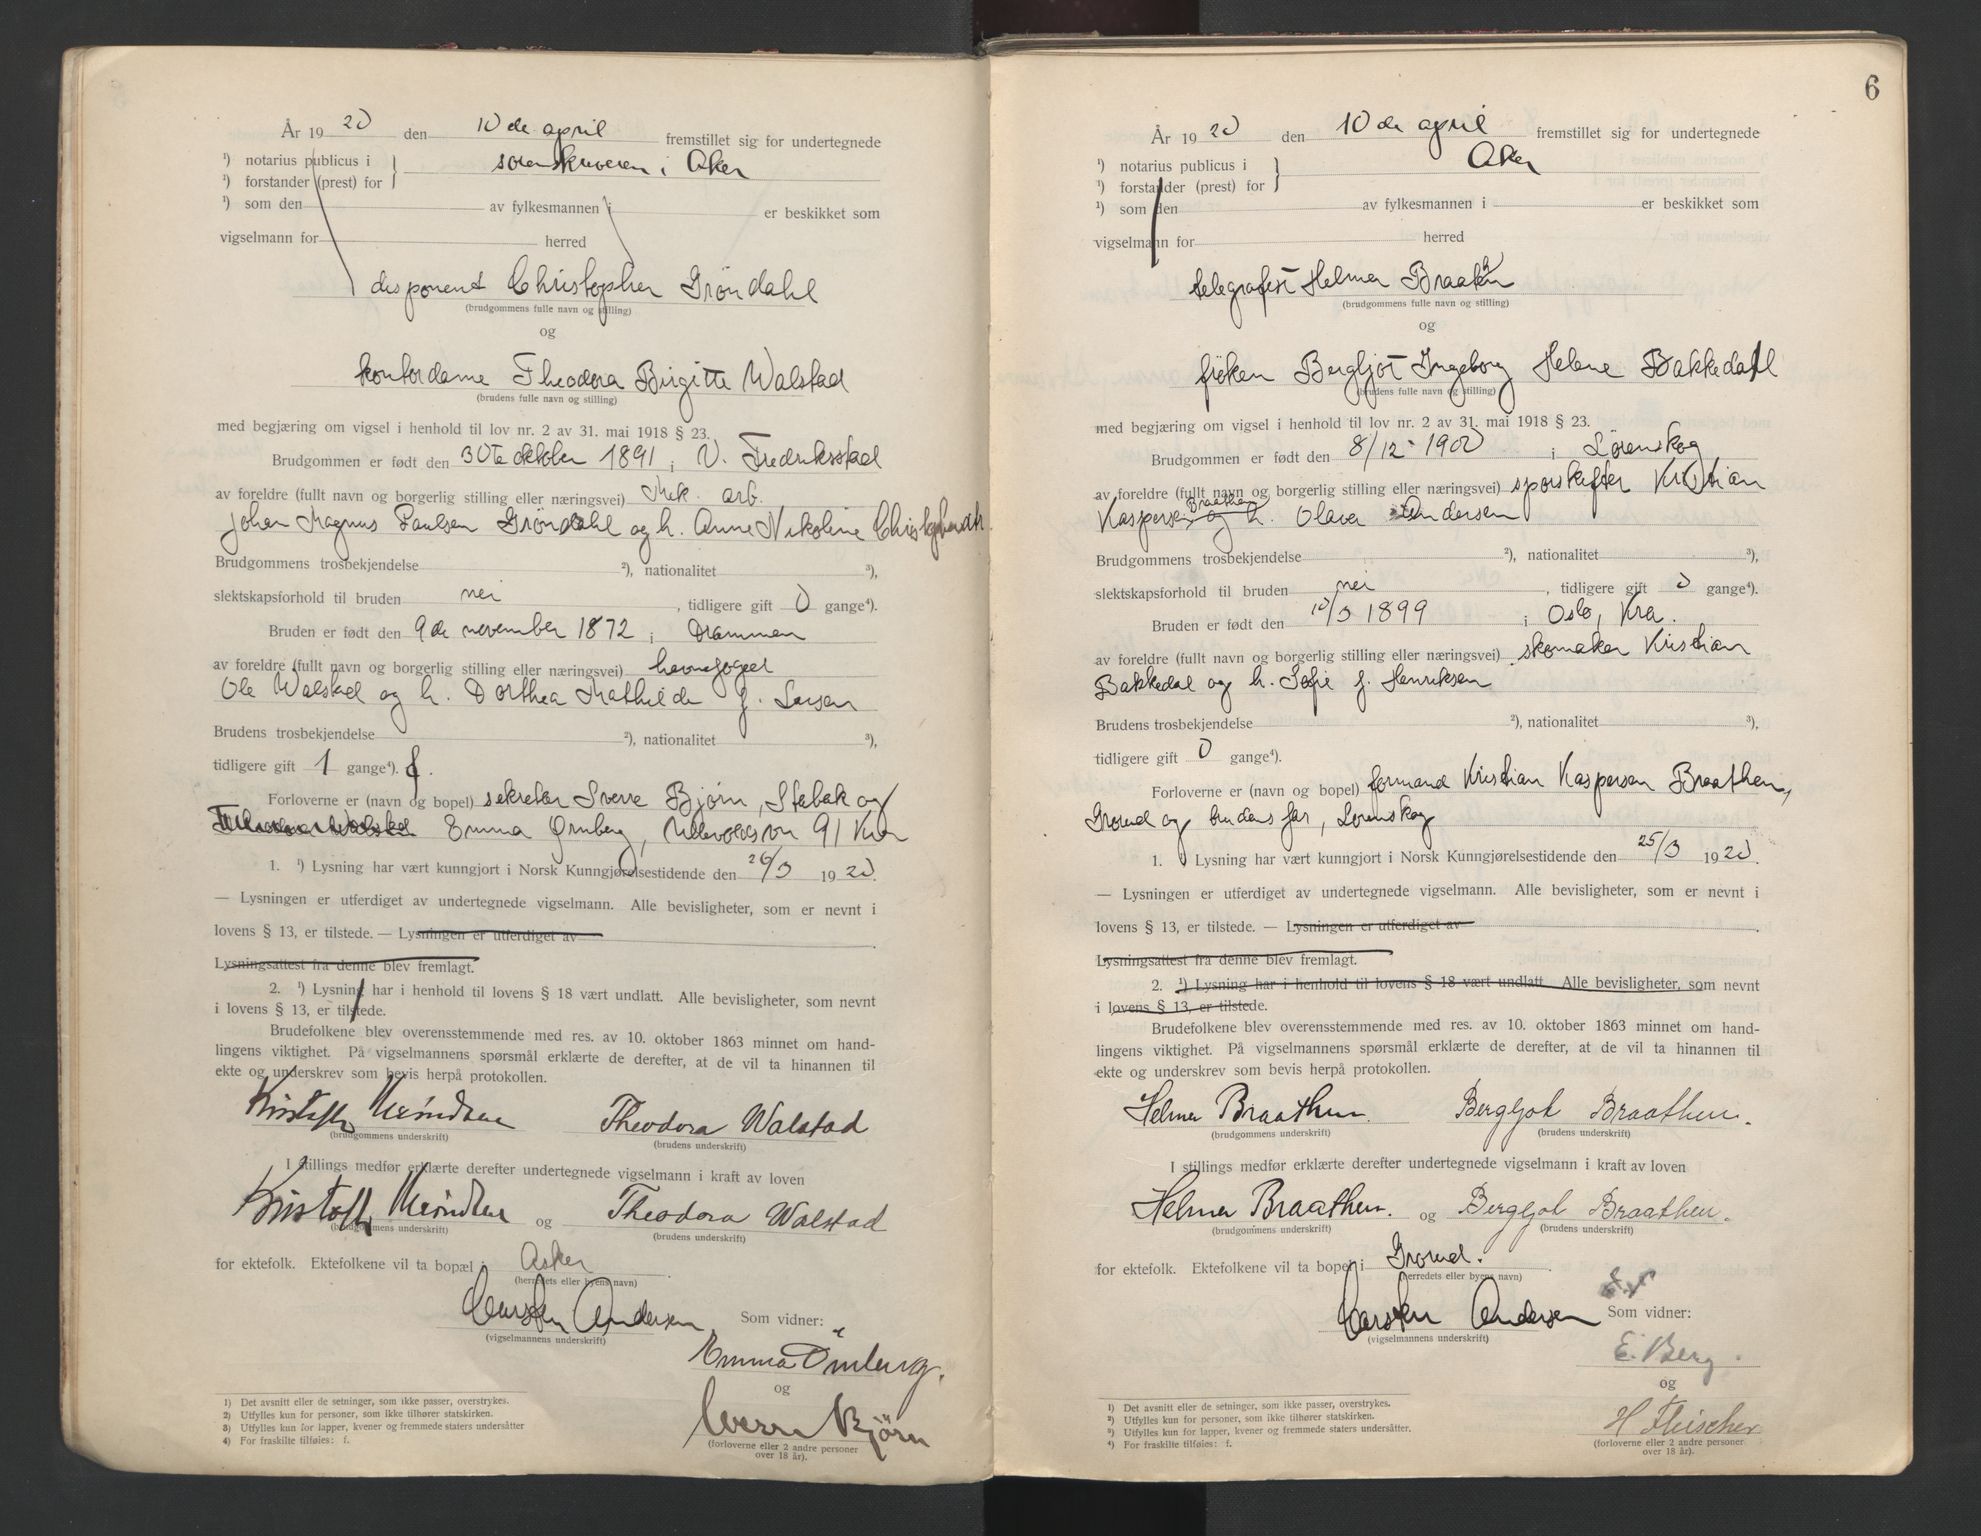 År 1920 den 10de april fremstillet sig for undertegnede
¹) notarius publicus i
¹) forstander (prest) for } sorenskriveren i Aker
¹) som den av fylkesmannen i er beskikket som
vigselmann for herred
disponent Christopher Grøndahl
(brudgommens fulle navn og stilling)
og
kontordame Theodora Birgitte Walstad
(brudens fulle navn og stilling)
med begjæring om vigsel i henhold til lov nr. 2 av 31. mai 1918 § 23.
Brudgommen er født den 30te oktober 1891 i V. Fredriksstad
av foreldre (fullt navn og borgerlig stilling eller næringsvei) Mek. arb.
Johan Magnus Paulsen Grøndahl og h. Anne Nikoline
Brudgommens trosbekjendelse ²), nationalitet ³),
slektskapsforhold til bruden nei, tidligere gift 0 gange⁴).
Bruden er født den 9de november 1872 i Drammen
av foreldre (fullt navn og borgerlig stilling eller næringsvei) havnefoged
Ole Walstad og h. Dorthea Mathilde f. Larsen
Brudens trosbekjendelse ²), nationalitet ³),
tidligere gift 1 gange⁴). f.
Forloverne er (navn og bopel) sekretær Sverre Bjørn, Stabek og
Emma Ørnberg, Ullevoldsvn 91 Kra
1. ¹) Lysning har vært kunngjort i Norsk Kunngjørelsestidende den 26/3 1920.
— Lysningen er utferdiget av undertegnede vigselmann. Alle bevisligheter, som er nevnt i
lovens § 13, er tilstede. — Lysningen er utferdiget av
Lysningsattest fra denne blev fremlagt.
2. ¹) Lysning har i henhold til lovens § 18 vært undlatt. Alle bevisligheter, som nevnt
i lovens § 13, er tilstede.
Brudefolkene blev overensstemmende med res. av 10. oktober 1863 minnet om hand-
lingens viktighet. På vigselmannens spørsmål erklærte de derefter, at de vil ta hinannen til
ekte og underskrev som bevis herpå protokollen.
Theodora Walstad
(brudgommens underskrift) (brudens underskrift)
I stillings medfør erklærte derefter undertegnede vigselmann i kraft av loven
og Theodora Walstad
(brudgommens underskrift) (brudens underskrift)
for ektefolk. Ektefolkene vil ta bopæl i Asker
(herredets eller byens navn)
Carsten Andersen Som vidner:
(vigselmannens underskrift)
Emma Örnberg.
og
Sverre Bjørn
(forloverne eller 2 andre personer
over 18 år).
1) Det avsnitt eller de setninger, som ikke passer, overstrykes.
2) Utfylles kun for personer, som ikke tilhører statskirken.
3) Utfylles kun for lapper, kvener og fremmede staters undersåtter
4) For fraskilte tilføies: f.
6
År 1920 den 10de april fremstillet sig for undertegnede
¹) notarius publicus i
¹) forstander (prest) for } Aker
¹) som den av fylkesmannen i er beskikket som
vigselmann for herred
telegrafist Helmer Braaten
(brudgommens fulle navn og stilling)
og
frøken Bergljot Ingeborg Helene Bakkedal
(brudens fulle navn og stilling)
med begjæring om vigsel i henhold til lov nr. 2 av 31. mai 1918 § 23.
Brudgommen er født den 8/12 - 1900 i Lørenskog
av foreldre (fullt navn og borgerlig stilling eller næringsvei) sporskifter Kristian
Kaspersen Braathen og h. Olava Andersen
Brudgommens trosbekjendelse ²), nationalitet ³),
slektskapsforhold til bruden nei, tidligere gift 0 gange⁴).
Bruden er født den 10/3 1899 i Oslo, Kra.
av foreldre (fullt navn og borgerlig stilling eller næringsvei) skomaker Kristian
Bakkedal og h. Sofie f. Henriksen
Brudens trosbekjendelse ²), nationalitet ³),
tidligere gift 0 gange⁴).
Forloverne er (navn og bopel) formand Kristian Kaspersen Braathen,
Grorud og brudens far, Lørenskog
1. ¹) Lysning har vært kunngjort i Norsk Kunngjørelsestidende den 25/3 1920.
— Lysningen er utferdiget av undertegnede vigselmann. Alle bevisligheter, som er nevnt i
lovens § 13, er tilstede. — Lysningen er utferdiget av
Lysningsattest fra denne blev fremlagt.
2. ¹) Lysning har i henhold til lovens § 18 vært undlatt. Alle bevisligheter, som nevnt
i lovens § 13, er tilstede.
Brudefolkene blev overensstemmende med res. av 10. oktober 1863 minnet om hand-
lingens viktighet. På vigselmannens spørsmål erklærte de derefter, at de vil ta hinannen til
ekte og underskrev som bevis herpå protokollen.
Helmer Braathen. Bergljot Braathen.
(brudgommens underskrift) (brudens underskrift)
I stillings medfør erklærte derefter undertegnede vigselmann i kraft av loven
Helmer Braathen. og Bergljot Braathen.
(brudgommens underskrift) (brudens underskrift)
for ektefolk. Ektefolkene vil ta bopel i Grorud.
(herredets eller byens navn)
Carsten Andersen Som vidner:
(vigselmannens underskrift)
E. Berg.
og
H Fleischer
(forloverne eller 2 andre personer
over 18 år).
1) Det avsnitt eller de setninger, som ikke passer, overstrykes.
2) Utfylles kun for personer, som ikke tilhører statskirken.
3) Utfylles kun for lapper, kvener og fremmede staters undersåtter.
4) For fraskilte tilføies: f.